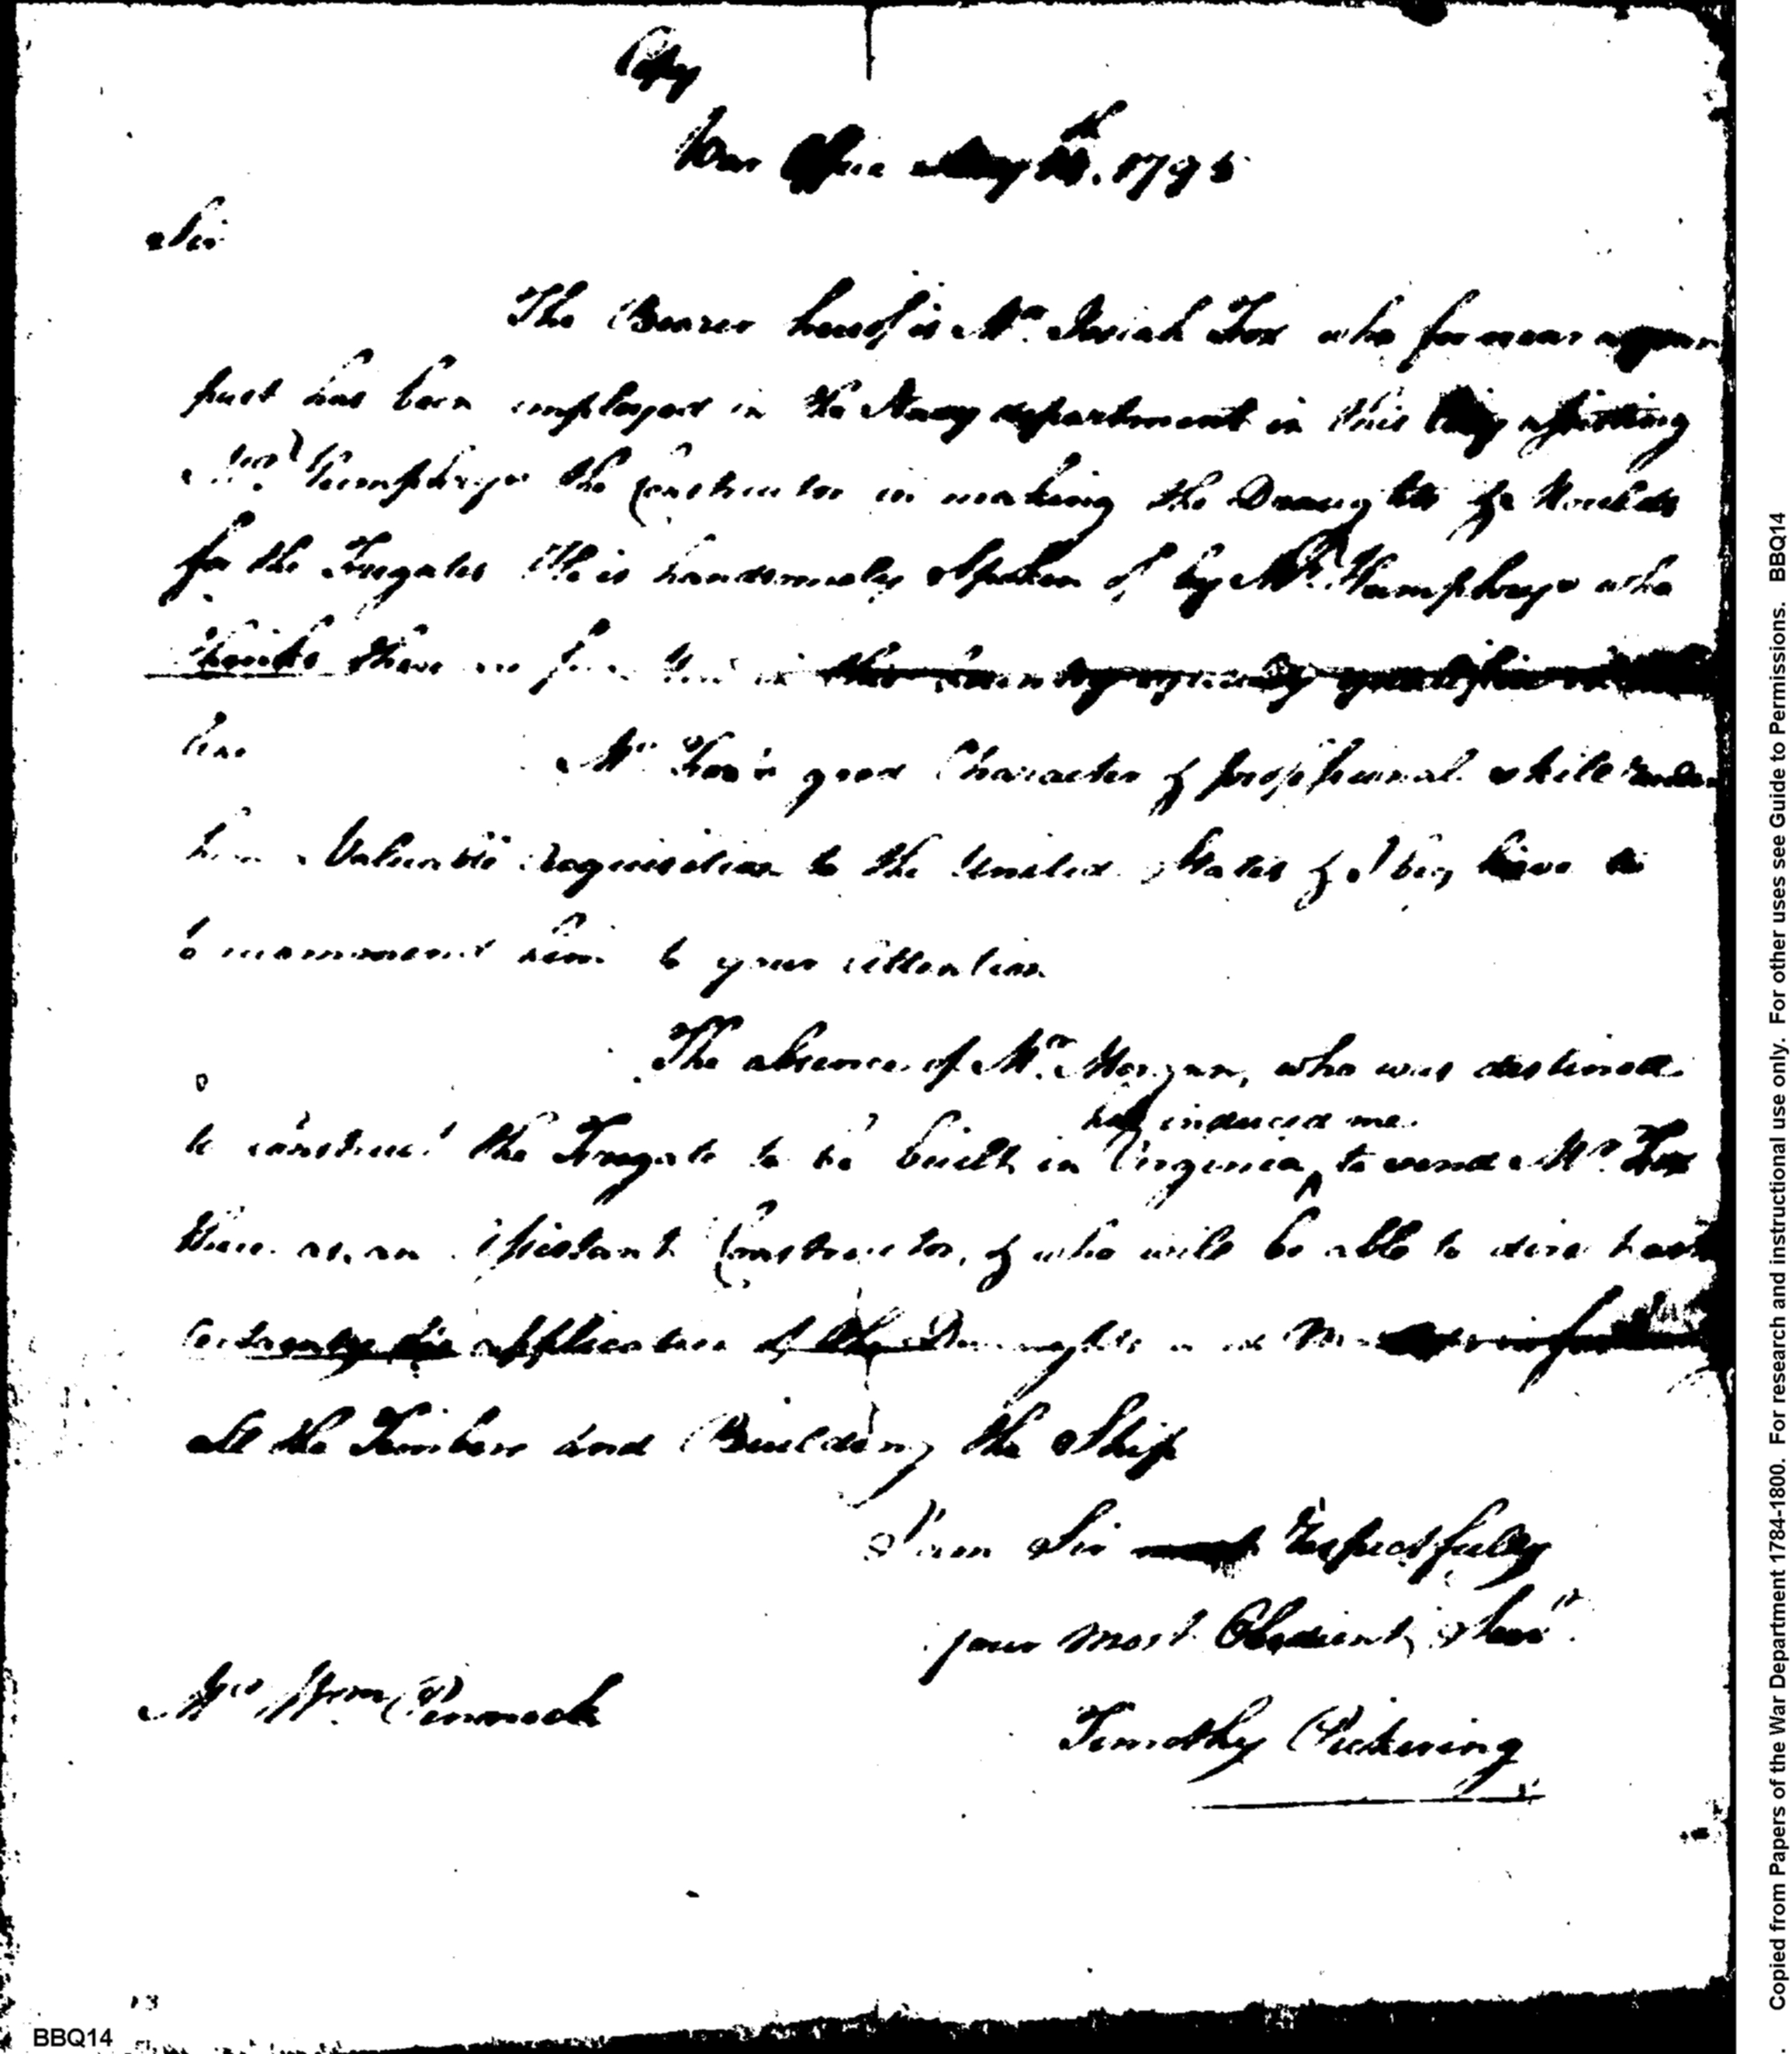 Copy
War Office May 1795
Sir
The Bearer hereof is Mr. Josiah Fox who for near a year
past has been employed in the Navy department in this City assisting
Mr. Humphreys the Constructor in making the Draughts & Moulds
for the Frigates He is handsomely Spoken of by Mr. Humphreys who
thinks there are few men in this Country equally qualified
here
Mr. Fox's good Character & professional skill render
him a Valuable acquisition to the United States & I beg leave to
to recommend him to your attention
The absence of Mr. Morgan, who was destined
has induced me
to construct the Frigate to be built in Virginia, to send Mr. Fox
there as an Assistant Constructor, & who will be able to direct with
certainty the application of the Draughts and
all the Timbers and Building the Ship
I am Sir most Respectfully
your most Obedient, Servt.
Mr. Wm. Pennock
Timothy Pickering
13
BBQ14
Copied from Papers of the War Department 1784-1800. For research and instructional use only. For other uses see Guide to Permissions. BBQ14